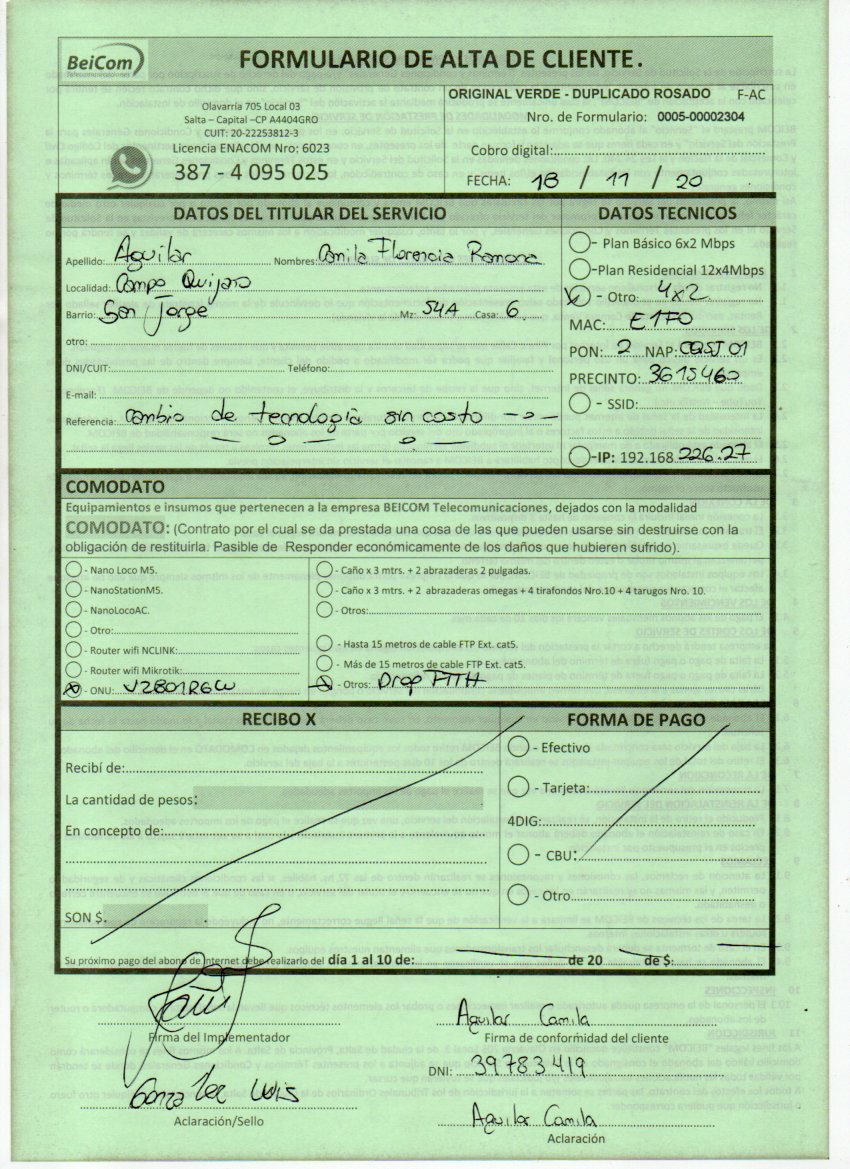 BeiCom
Telecomunicaciones
FORMULARIO DE ALTA DE CLIENTE.
Olavarría 705 Local 03
Salta – Capital –CP A4404GRO
CUIT: 20-22253812-3
Licencia ENACOM Nro: 6023
387 - 4 095 025
ORIGINAL VERDE - DUPLICADO ROSADO F-AC
Nro. de Formulario: 0005-00002304
Cobro digital:
FECHA: 18 / 11 / 20
DATOS DEL TITULAR DEL SERVICIO
Apellido: Aguilar Nombres: Camila Florencia Ramona
Localidad: Campo Quijano
Barrio: San Jorge Mz: 54A Casa: 6
otro:
DNI/CUIT: Teléfono:
E-mail:
Referencia: Cambio de tecnología sin costo
DATOS TECNICOS
- Plan Básico 6x2 Mbps
-Plan Residencial 12x4Mbps
- Otro: 4x2
MAC: E1F0
PON: 2 NAP: CQSJ01
PRECINTO: 3615460
- SSID:
-IP: 192.168.226.27
COMODATO
Equipamientos e insumos que pertenecen a la empresa BEICOM Telecomunicaciones, dejados con la modalidad
COMODATO: (Contrato por el cual se da prestada una cosa de las que pueden usarse sin destruirse con la
obligación de restituirla. Pasible de Responder económicamente de los daños que hubieren sufrido).
- Nano Loco M5.
- NanoStationM5.
- NanoLocoAC.
- Otro:
- Router wifi NCLINK:
- Router wifi Mikrotik:
- ONU: V2801RGW
- Caño x 3 mtrs. + 2 abrazaderas 2 pulgadas.
- Caño x 3 mtrs. + 2 abrazaderas omegas + 4 tirafondos Nro.10 + 4 tarugos Nro. 10.
- Otros:
- Hasta 15 metros de cable FTP Ext. cat5.
- Más de 15 metros de cable FTP Ext. cat5.
- Otros: Drop FTTH
RECIBO X
Recibí de:
La cantidad de pesos:
En concepto de:
SON $.
FORMA DE PAGO
- Efectivo
- Tarjeta:
4DIG:
- CBU:
- Otro
Su próximo pago del abono de Internet debe realizarlo del día 1 al 10 de: de 20 de $:
Firma del Implementador
Gonzalez Luis
Aclaración/Sello
Aguilar Camila
Firma de conformidad del cliente
DNI: 39783419
Aguilar Camila
Aclaración